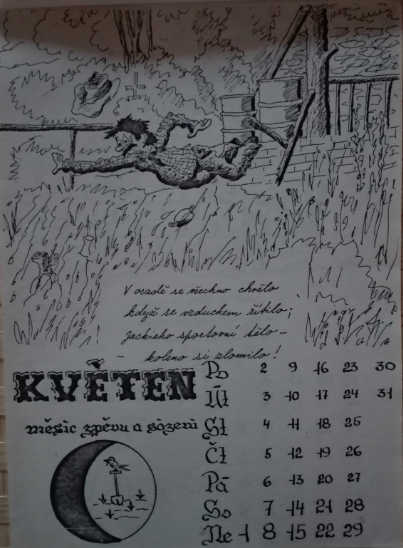 V osadě se všechno chvělo
když se vzduchem řítilo;
Jackieho sportovní tělo –
– koleno si zlomilo!
KVĚTEN
měsíc zpěvu a sázení
Po 2 9 16 23 30
Út 3 10 17 24 31
St 4 11 18 25
Čt 5 12 19 26
Pá 6 13 20 27
So 7 14 21 28
Ne 1 8 15 22 29